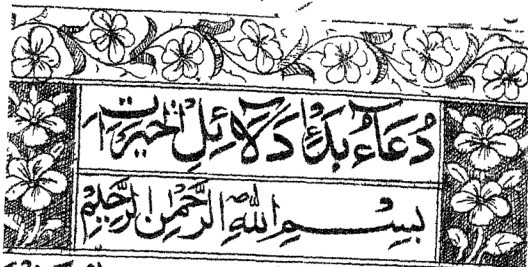 دُعَآءُ بَدْءِ دَلَآئِلِ الْخَيْرَاتِ
بِسْمِ اللهِ الرَّحْمٰنِ الرَّحِيْمِ